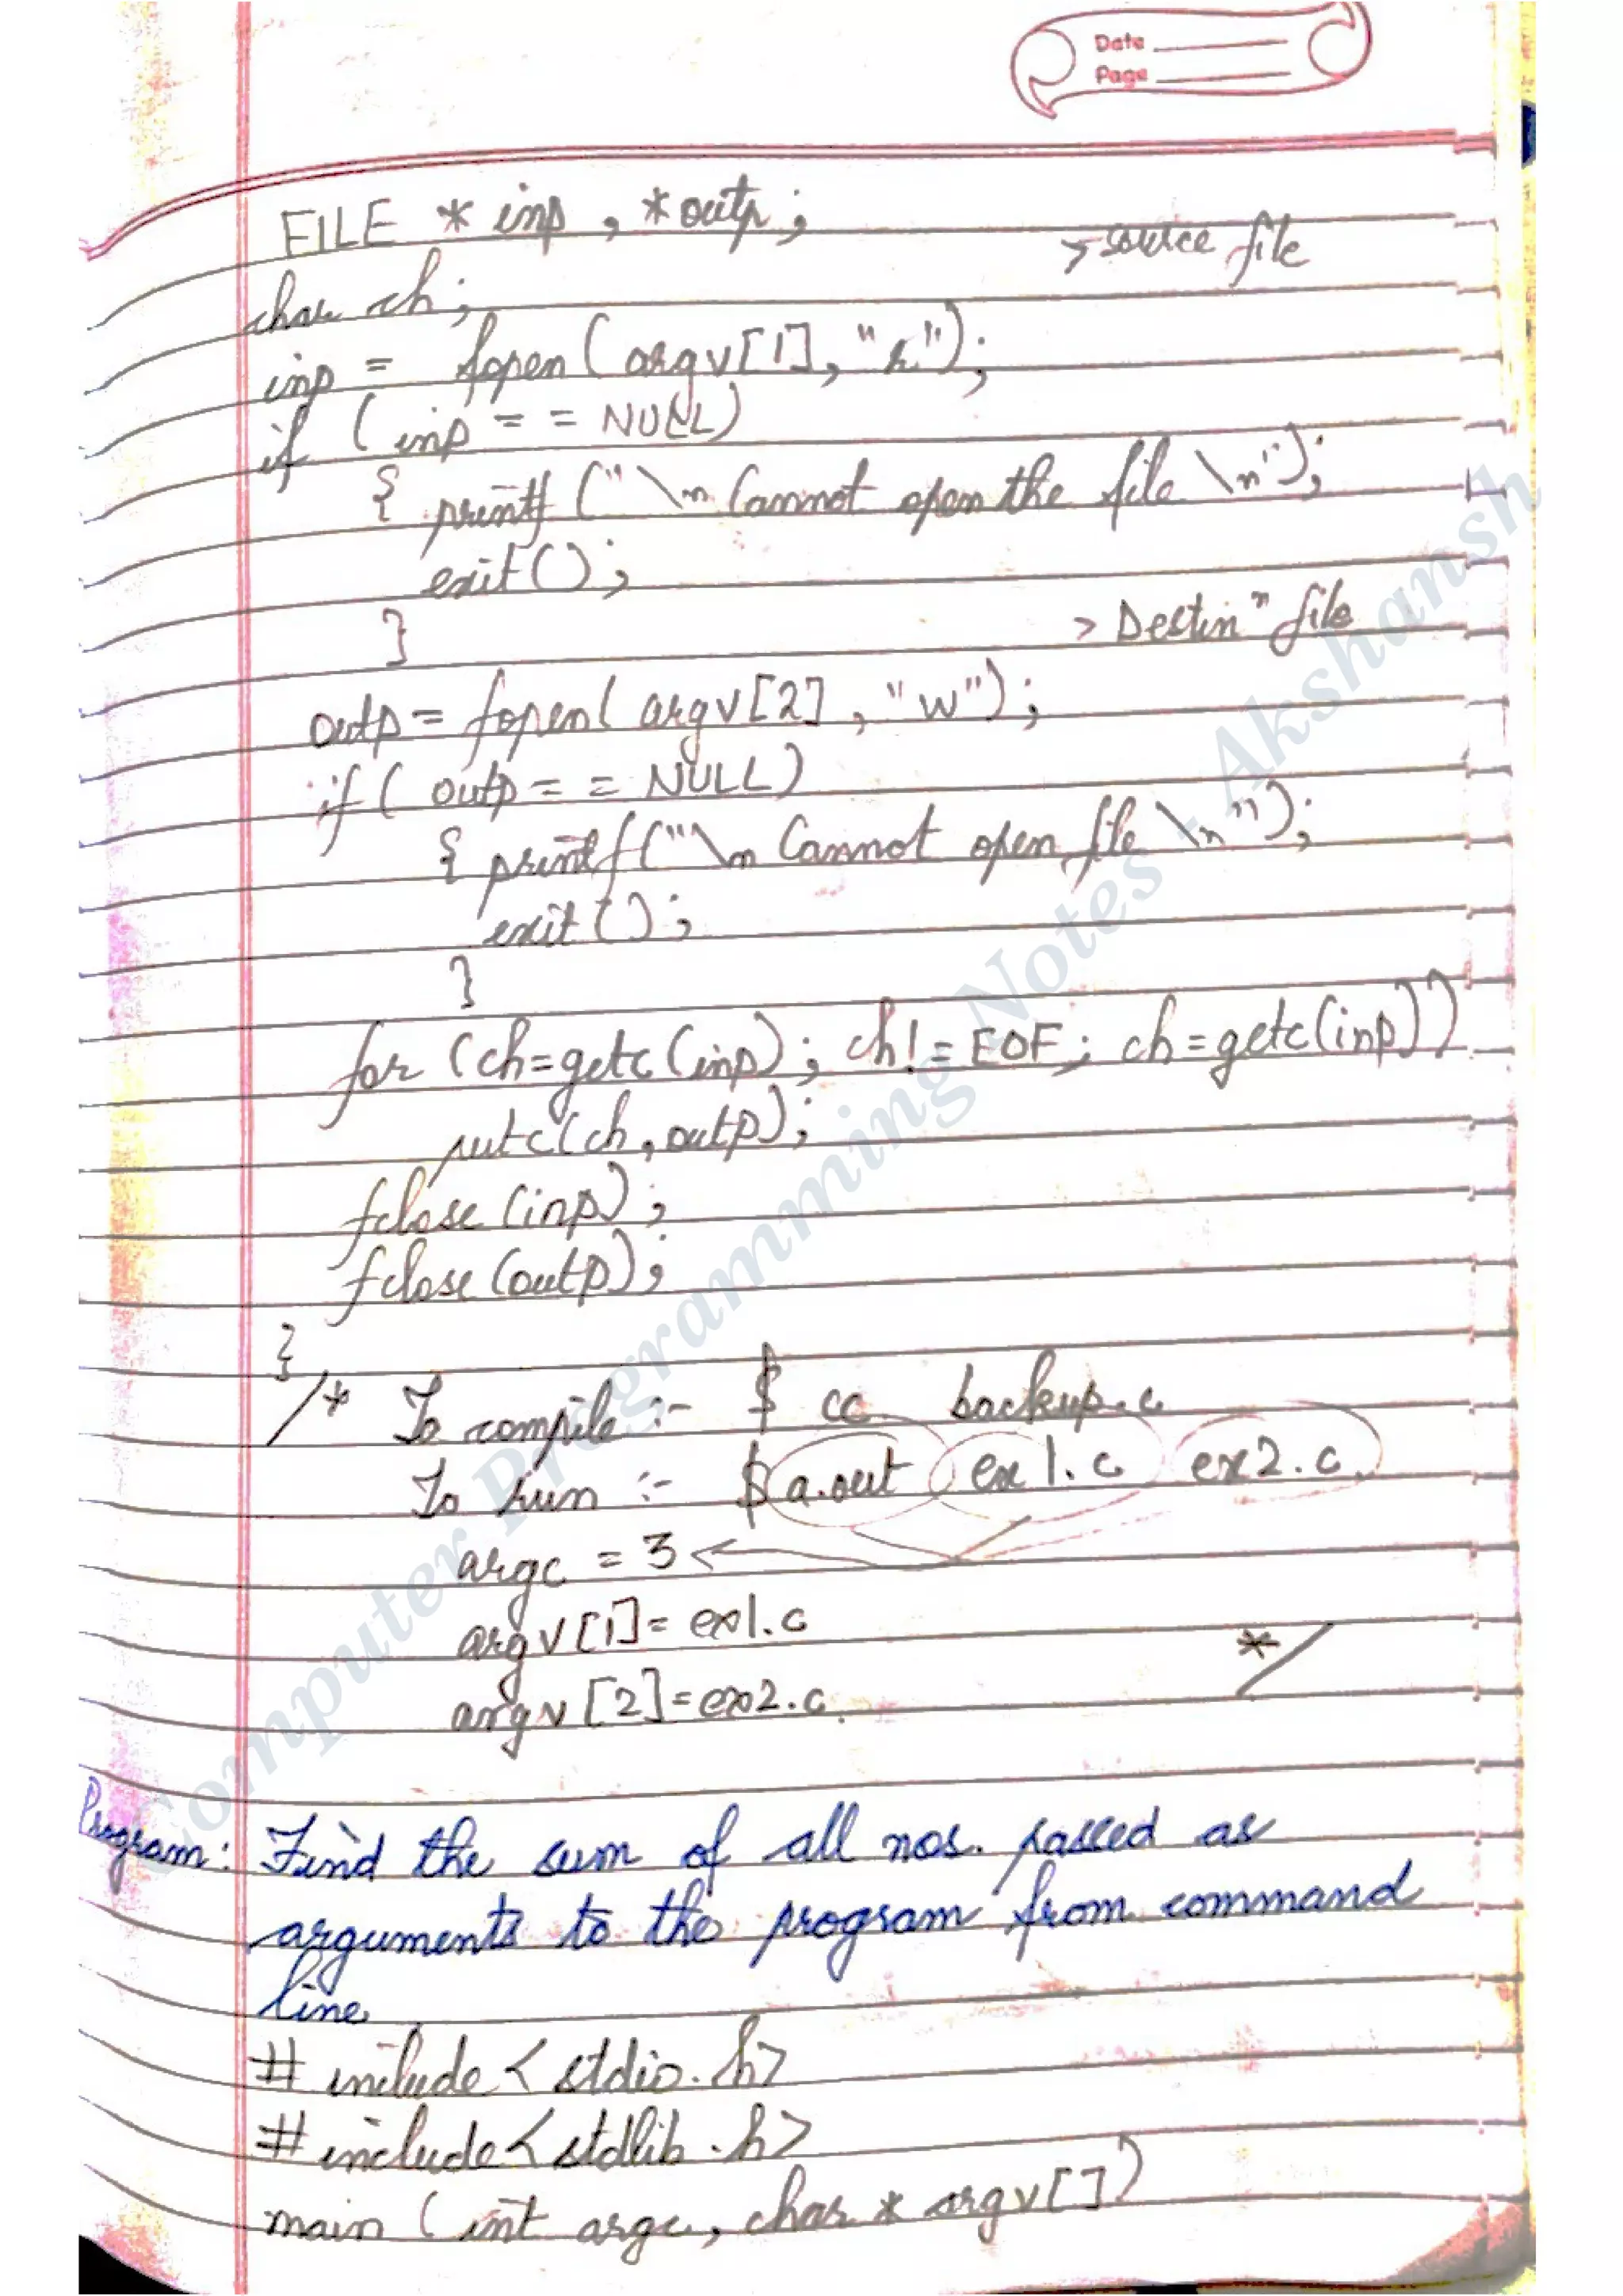 Date
Page
FILE * inp, *outp;
> source file
char ch;
inp = fopen(argv[1], "r");
if (inp == NULL)
{ printf("\n Cannot open the file \n");
exit();
}
> Destinⁿ file
outp = fopen(argv[2], "w");
if( outp == NULL)
{ printf("\n Cannot open file \n");
exit();
}
for (ch=getc(inp); ch!=EOF; ch=getc(inp))
putc(ch, outp);
fclose(inp);
fclose(outp);
}
/* To compile :- $ cc backup.c
To run :- $ a.out ex1.c ex2.c
argc = 3
argv[1]=ex1.c
*/
argv[2]=ex2.c
Program: Find the sum of all nos. passed as
arguments to the program from command
line
# include < stdio.h>
# include < stdlib.h>
main (int argc, char * argv[])
Computer Programming Notes - Akshansh